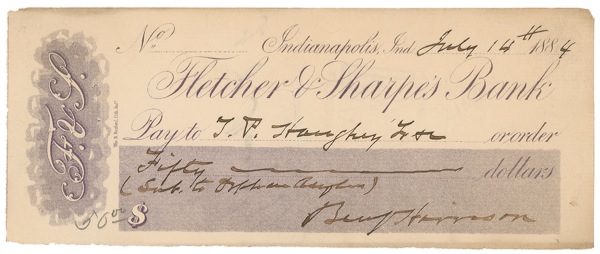 No. Indianapolis, Ind. July 14th 1884
Fletcher & Sharpe's Bank
Pay to T. P. Haughey or order
Fifty dollars
(Sub. to Orphan Asylum)
50.00 $ Benj Harrison
F. & S.